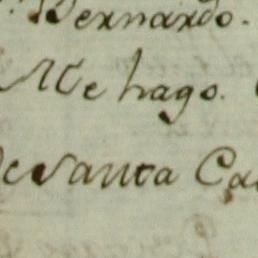 Bernardo.
Me hago.
De Santa Ca